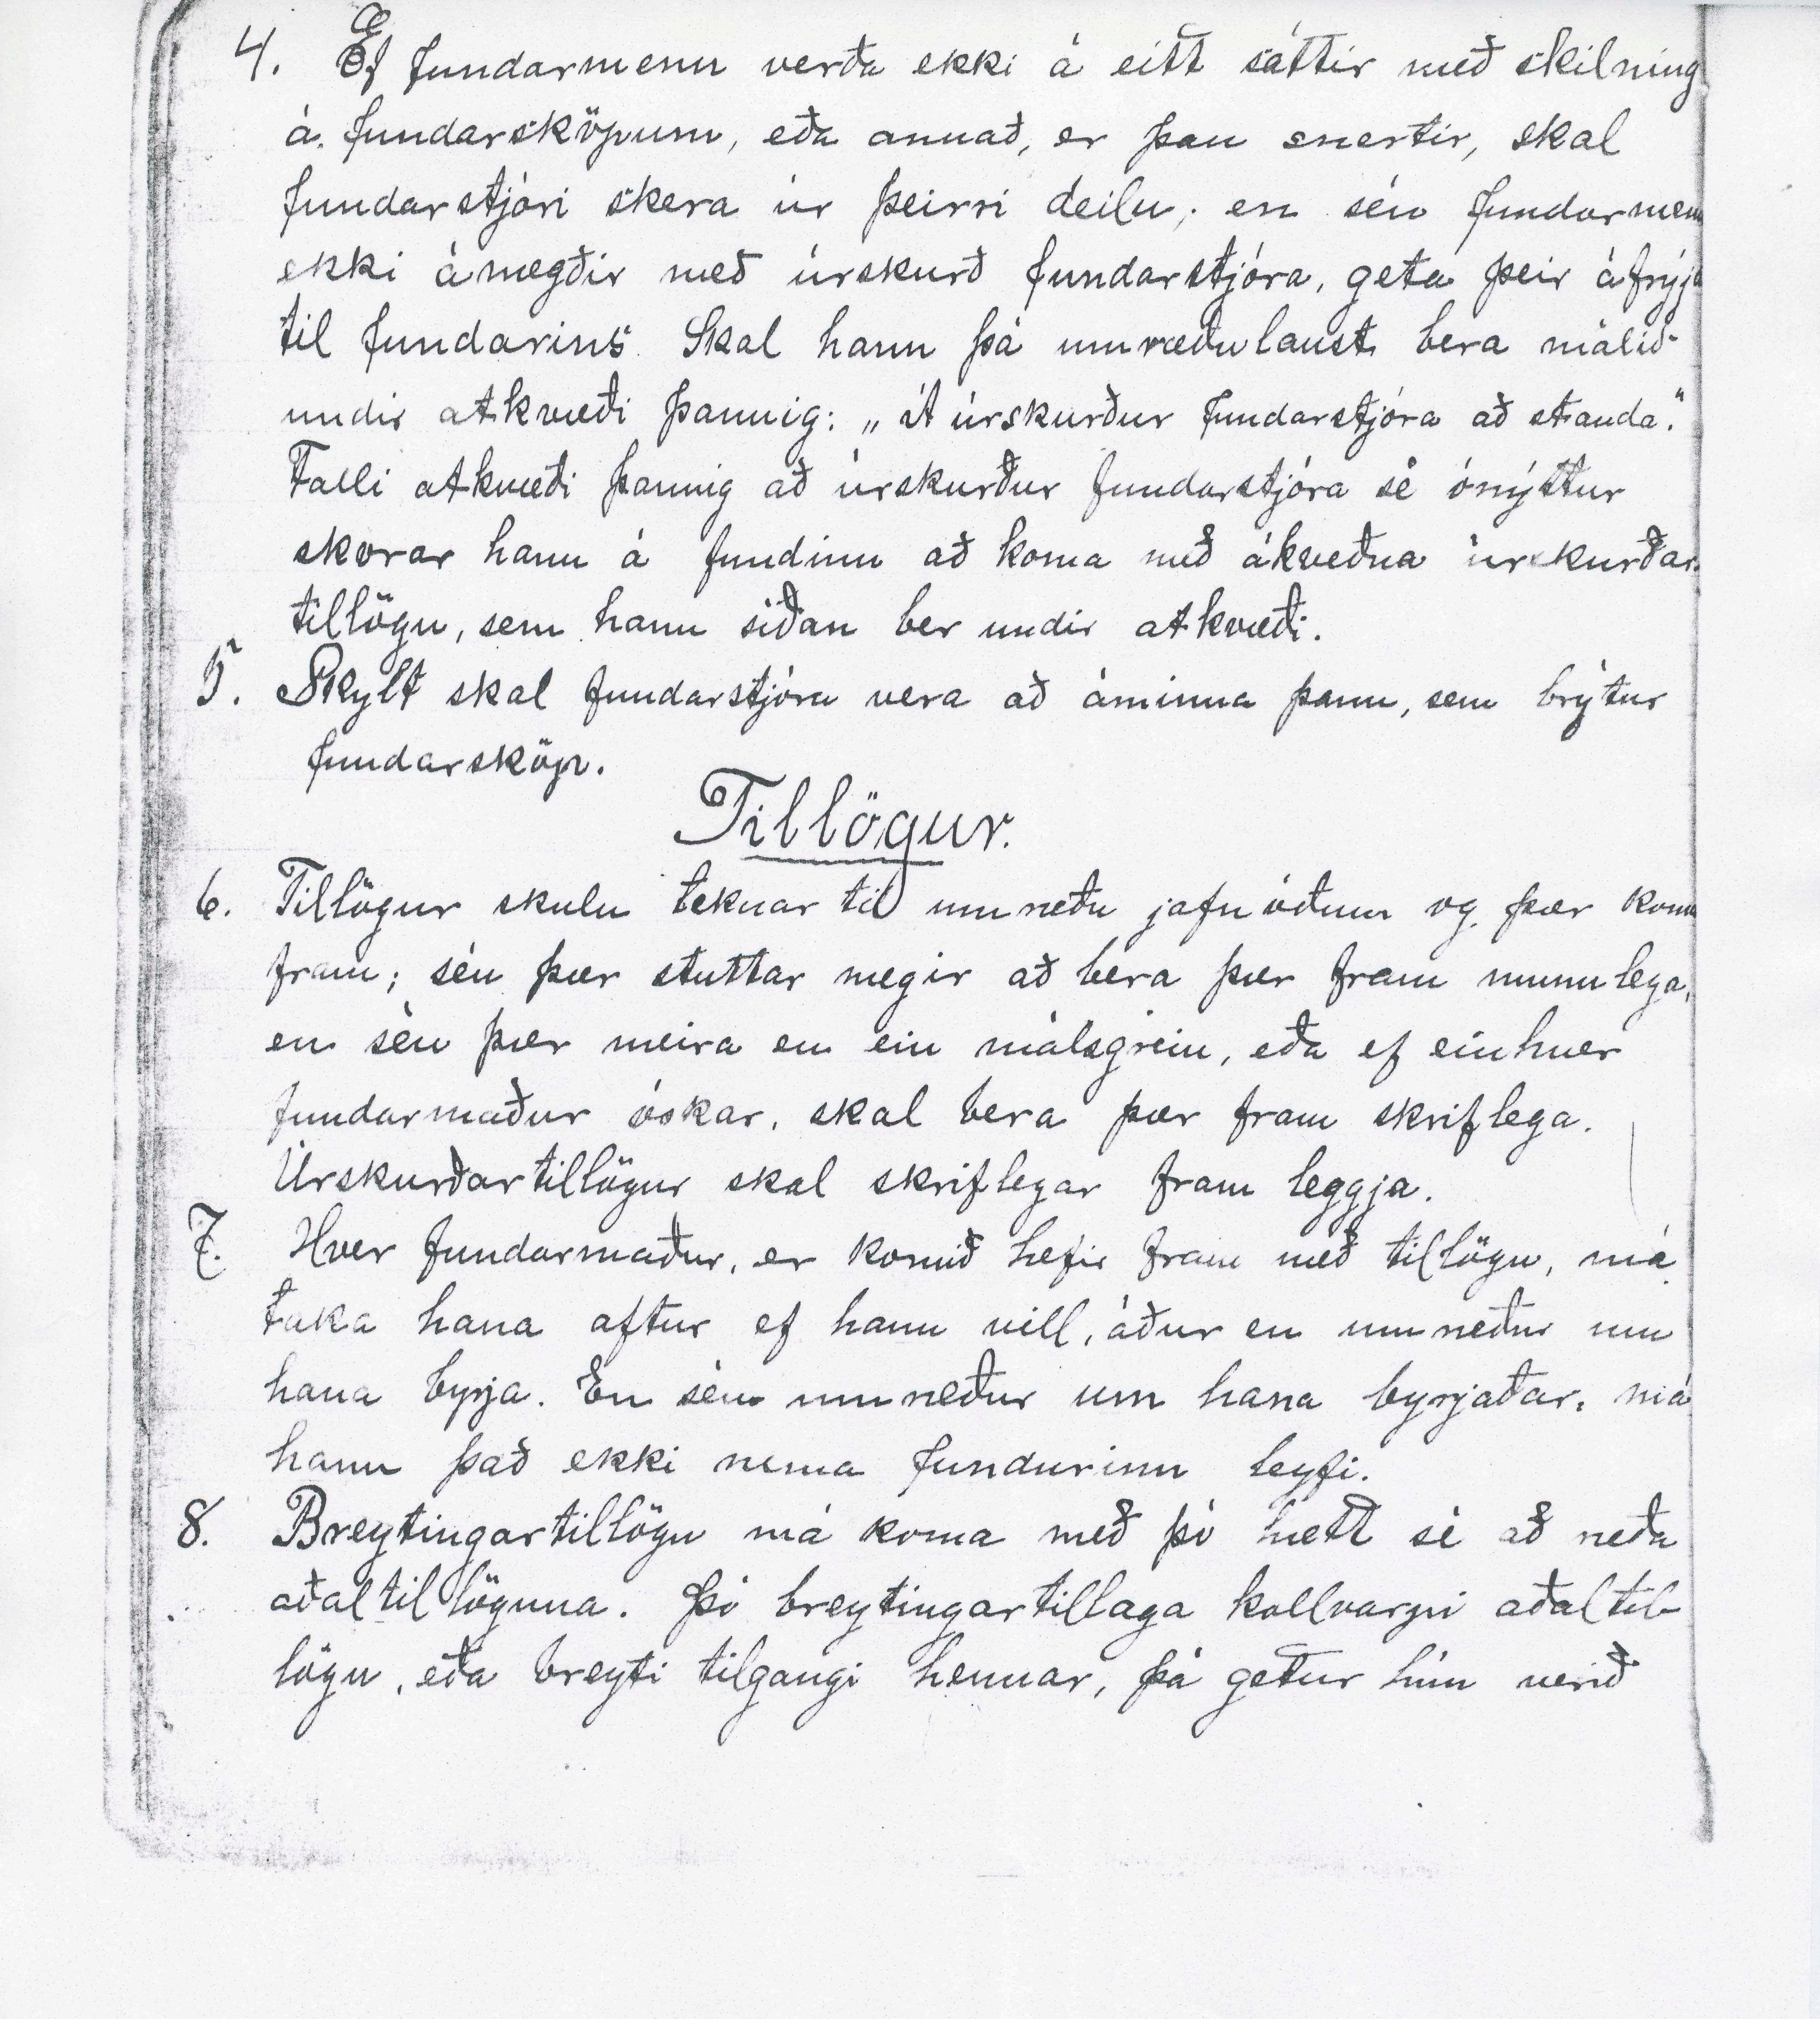 4. Ef fundarmenn verða ekki á eitt sáttir með skilning
á fundarsköpum, eða annað, er þau snertir, skal
fundarstjóri skera úr þeirri deilu; en séu fundarmenn
ekki ánægðir með úrskurð fundarstjóra, geta þeir áfrýja
til fundarins. Skal hann þá umræðulaust bera málið
undir atkvæði þannig: „Á úrskurður fundarstjóra að standa."
Falli atkvæði þannig að úrskurður fundarstjóra sé ónýttur
skorar hann á fundinn að koma með ákveðna úrskurðar-
tillögu, sem hann síðan ber undir atkvæði.
5. Skylt skal fundarstjóra vera að áminna þann, sem brýtur
fundarsköp.
Tillögur.
6. Tillögur skulu teknar til umræðu jafnóðum og þær koma
fram; séu þær stuttar nægir að bera þær fram munnlega,
en séu þær meira en ein málsgrein, eða ef einhver
fundarmaður óskar, skal bera þær fram skriflega.
Úrskurðartillögur skal skriflegar fram leggja.
7. Hver fundarmaður, er komið hefir fram með tillögu, má
taka hana aftur ef hann vill, áður en umræður um
hana byrja. En séu umræður um hana byrjaðar, má
hann það ekki nema fundurinn leyfi.
8. Breytingartillögu má koma með þó hætt sé að ræða
aðaltillöguna. Þó breytingartillaga kollvarpi aðaltil-
lögu, eða breyti tilgangi hennar, þá getur hún verið